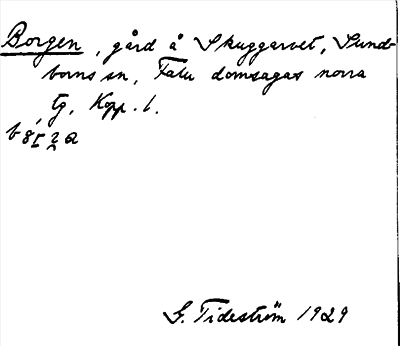 Borgen, gård å Skuggarvet, Sund-
borns sn, Falu domsagas norra
tg, Kopp. l.
G. Tideström 1929